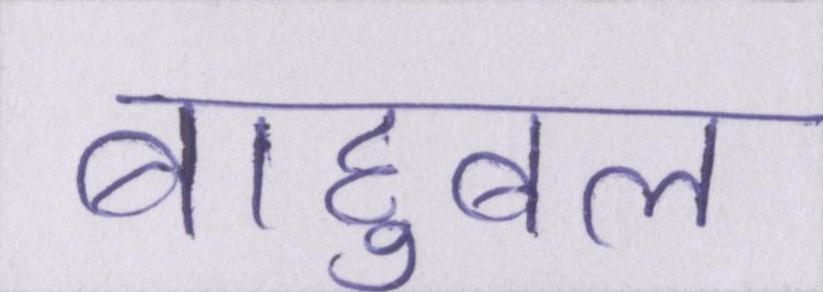 बाहुबल